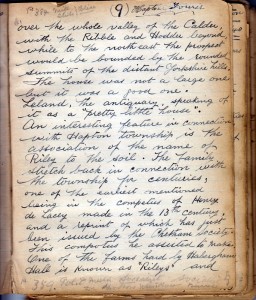 (9) Hapton Tower
over the whole valley of the Calder,
with the Ribble and Hodder beyond
while to the north east the prospect
would be bounded by the rounded
summits of the distant Yorkshire hills.
The house was not a large one
but it was a good one.
Leland, the antiquary, speaking of
it as a "pretty little house".
An interesting feature in connection
with Hapton township is the
association of the name of
Riley to the soil. The family
stretch back in connection with
the township for centuries,
one of the earliest mentioned
being in the compotus of Henry
de Lacey made in the 13th century,
and a reprint of which has just
been issued by the Chetham Society.
This compotus he assisted to make.
One of the farms hard by Habergham
Hall is known as "Rileys" and